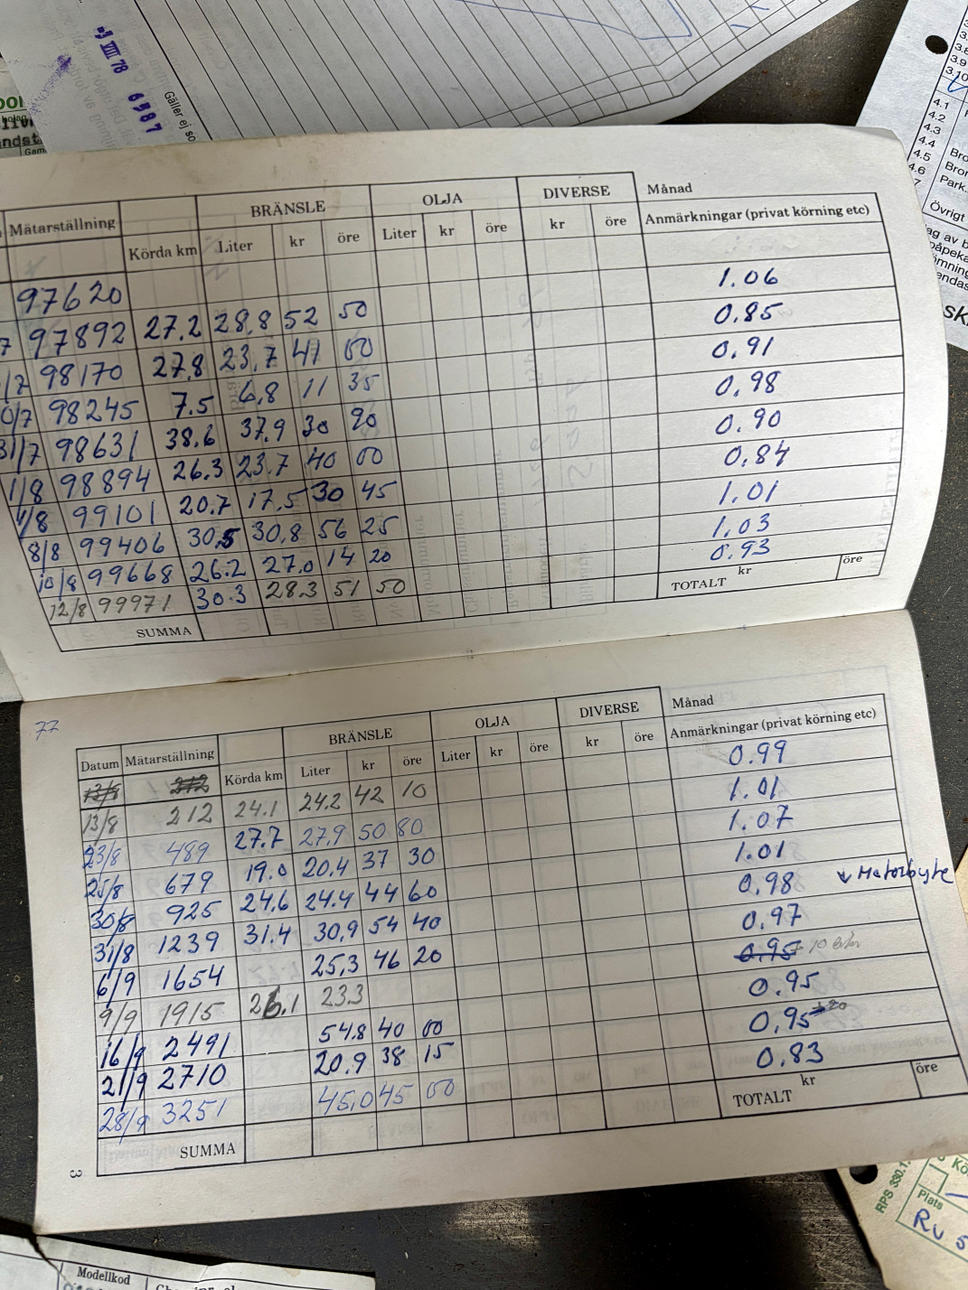 -9 VIII 78 6587
Gäller ej so
BRÄNSLE OLJA DIVERSE Månad
Mätarställning Körda km Liter kr öre Liter kr öre kr öre Anmärkningar (privat körning etc)
97620 1.06
7 97892 27.2 28,8 52 50 0.85
/7 98170 27,8 23,7 41 60 0,91
0/7 98245 7.5 6,8 11 35 0,98
31/7 98631 38.6 37,9 30 20 0.90
1/8 98894 26.3 23.7 40 00 0,84
/8 99101 20.7 17,5 30 45 1,01
8/8 99406 30,5 30,8 56 25 1,03
10/8 99668 26.2 27.0 14 20 0,93
12/8 99971 30.3 28.3 51 50
SUMMA TOTALT kr öre
77
BRÄNSLE OLJA DIVERSE Månad
Datum Mätarställning Körda km Liter kr öre Liter kr öre kr öre Anmärkningar (privat körning etc)
13/8 212 0.99
13/8 212 24.1 24.2 42 10 1.01
23/8 489 27.7 27,9 50 80 1.07
25/8 679 19.0 20.4 37 30 1.01
30/8 925 24,6 24.4 44 60 0,98 ↓ Motorbyte
31/8 1239 31.4 30,9 54 40 0,97
6/9 1654 25,3 46 20 0.95 10
9/9 1915 26.1 23.3 0.95
16/9 2491 54.8 40 00 0,95 +20
21/9 2710 20.9 38 15 0.83
28/9 3251 45,0 45 00
SUMMA TOTALT kr öre
3
4.1
4.2
4.3
4.4
4.5
4.6
Park.
Övrigt
RPS 330.1
Plats
Modellkod